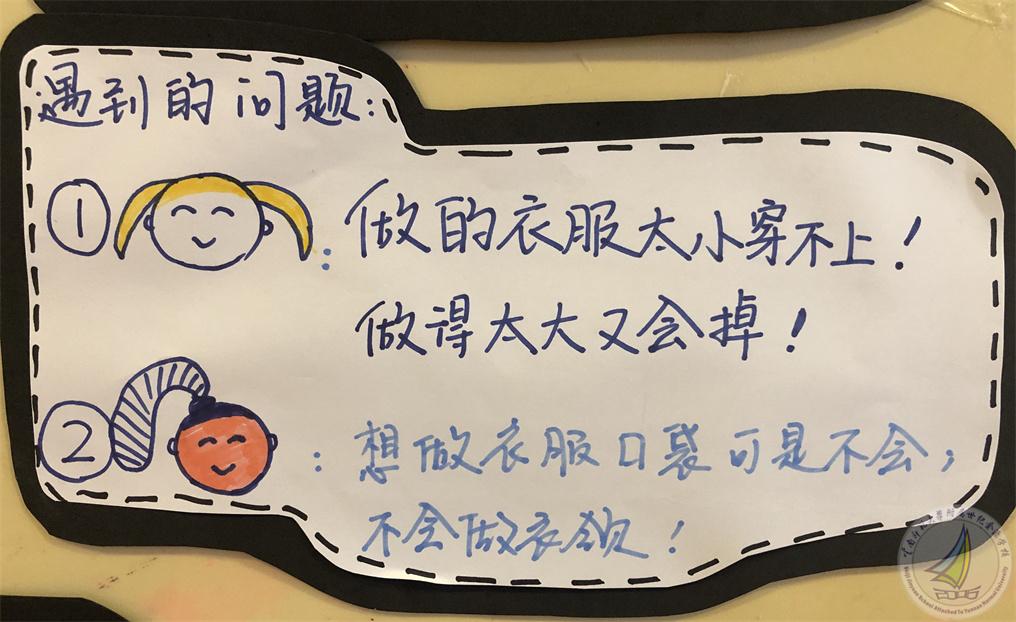 遇到的问题:
①
: 做的衣服太小穿不上!
做得太大又会掉!
②
: 想做衣服口袋可是不会,
不会做衣领!
2006